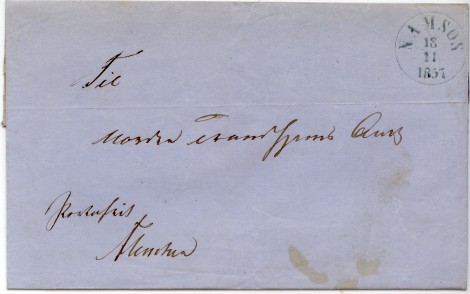 NAMSOS
18
11
1857
Til
Nordre Trondhjems Amt
Portofrit